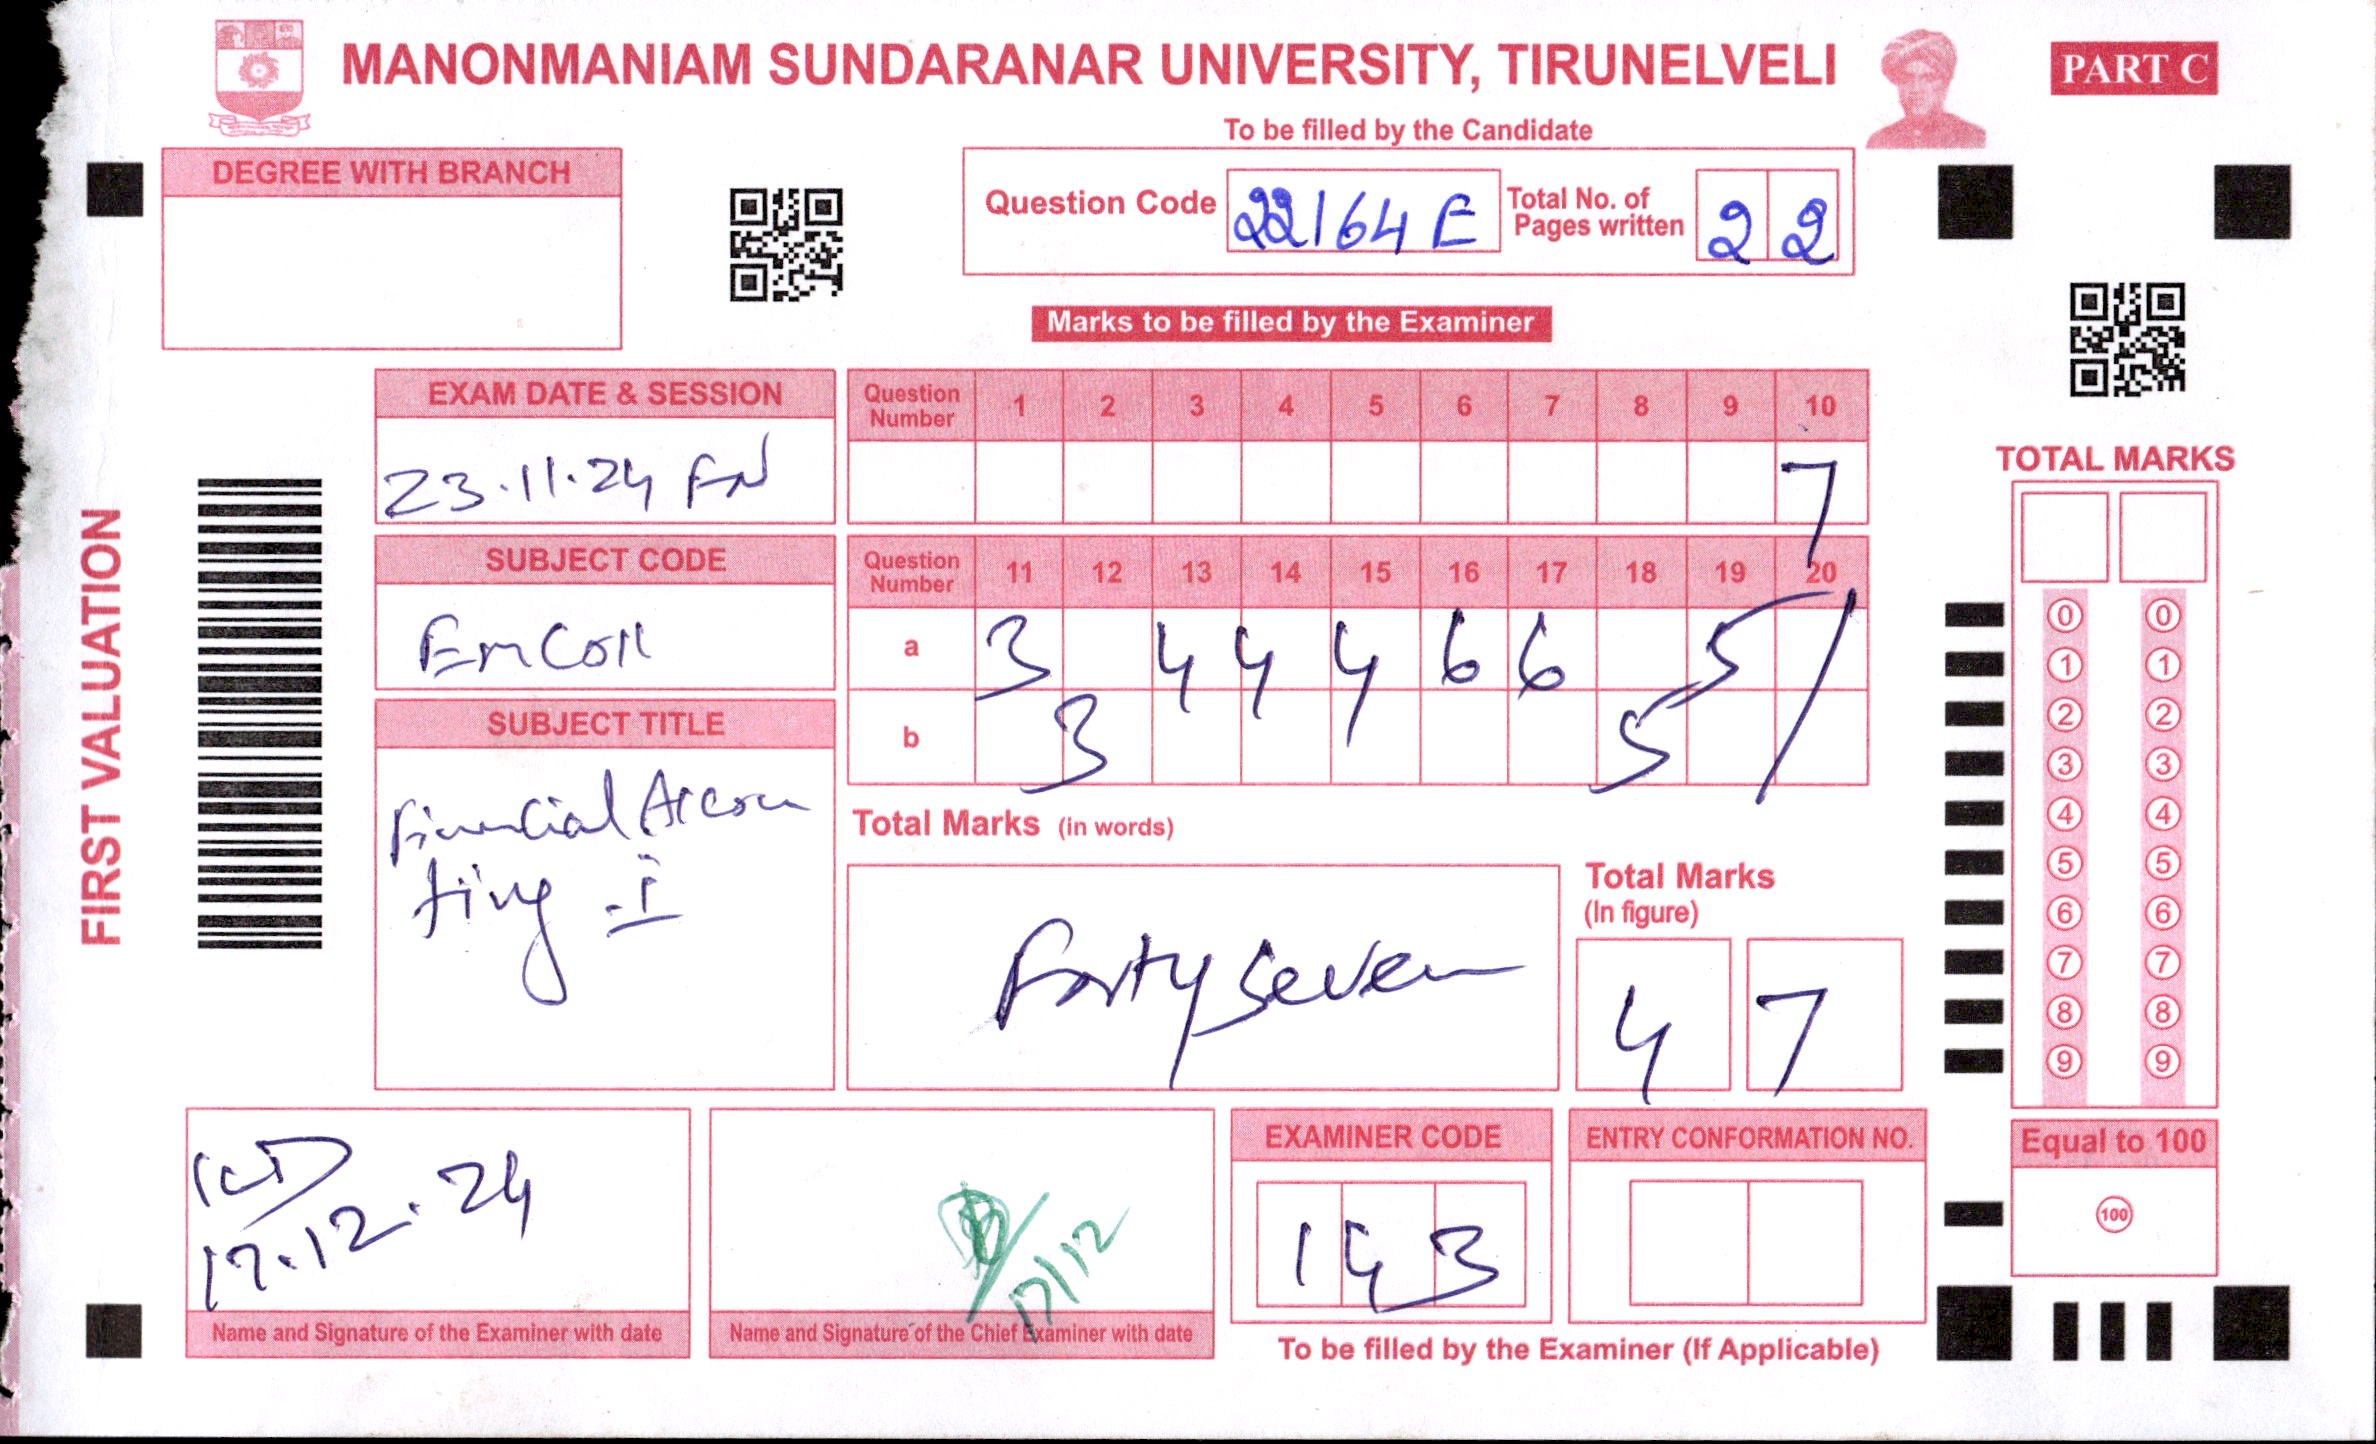 MANONMANIAM SUNDARANAR UNIVERSITY, TIRUNELVELI
PART C
To be filled by the Candidate
DEGREE WITH BRANCH
Question Code 22164 E
Total No. of Pages written 2 2
Marks to be filled by the Examiner
EXAM DATE & SESSION
23.11.24 FN
Question Number 1 2 3 4 5 6 7 8 9 10
7
SUBJECT CODE
Question Number 11 12 13 14 15 16 17 18 19 20
a 3 4 4 4 6 6 5
b 3 5
SUBJECT TITLE
Financial Accoun
ting - I
Total Marks (in words)
Forty Seven
Total Marks
(In figure)
4 7
FIRST VALUATION
TOTAL MARKS
0 0
1 1
2 2
3 3
4 4
5 5
6 6
7 7
8 8
9 9
Equal to 100
100
17.12.24
Name and Signature of the Examiner with date
17/12
Name and Signature of the Chief Examiner with date
EXAMINER CODE
1 4 3
ENTRY CONFORMATION NO.
To be filled by the Examiner (If Applicable)